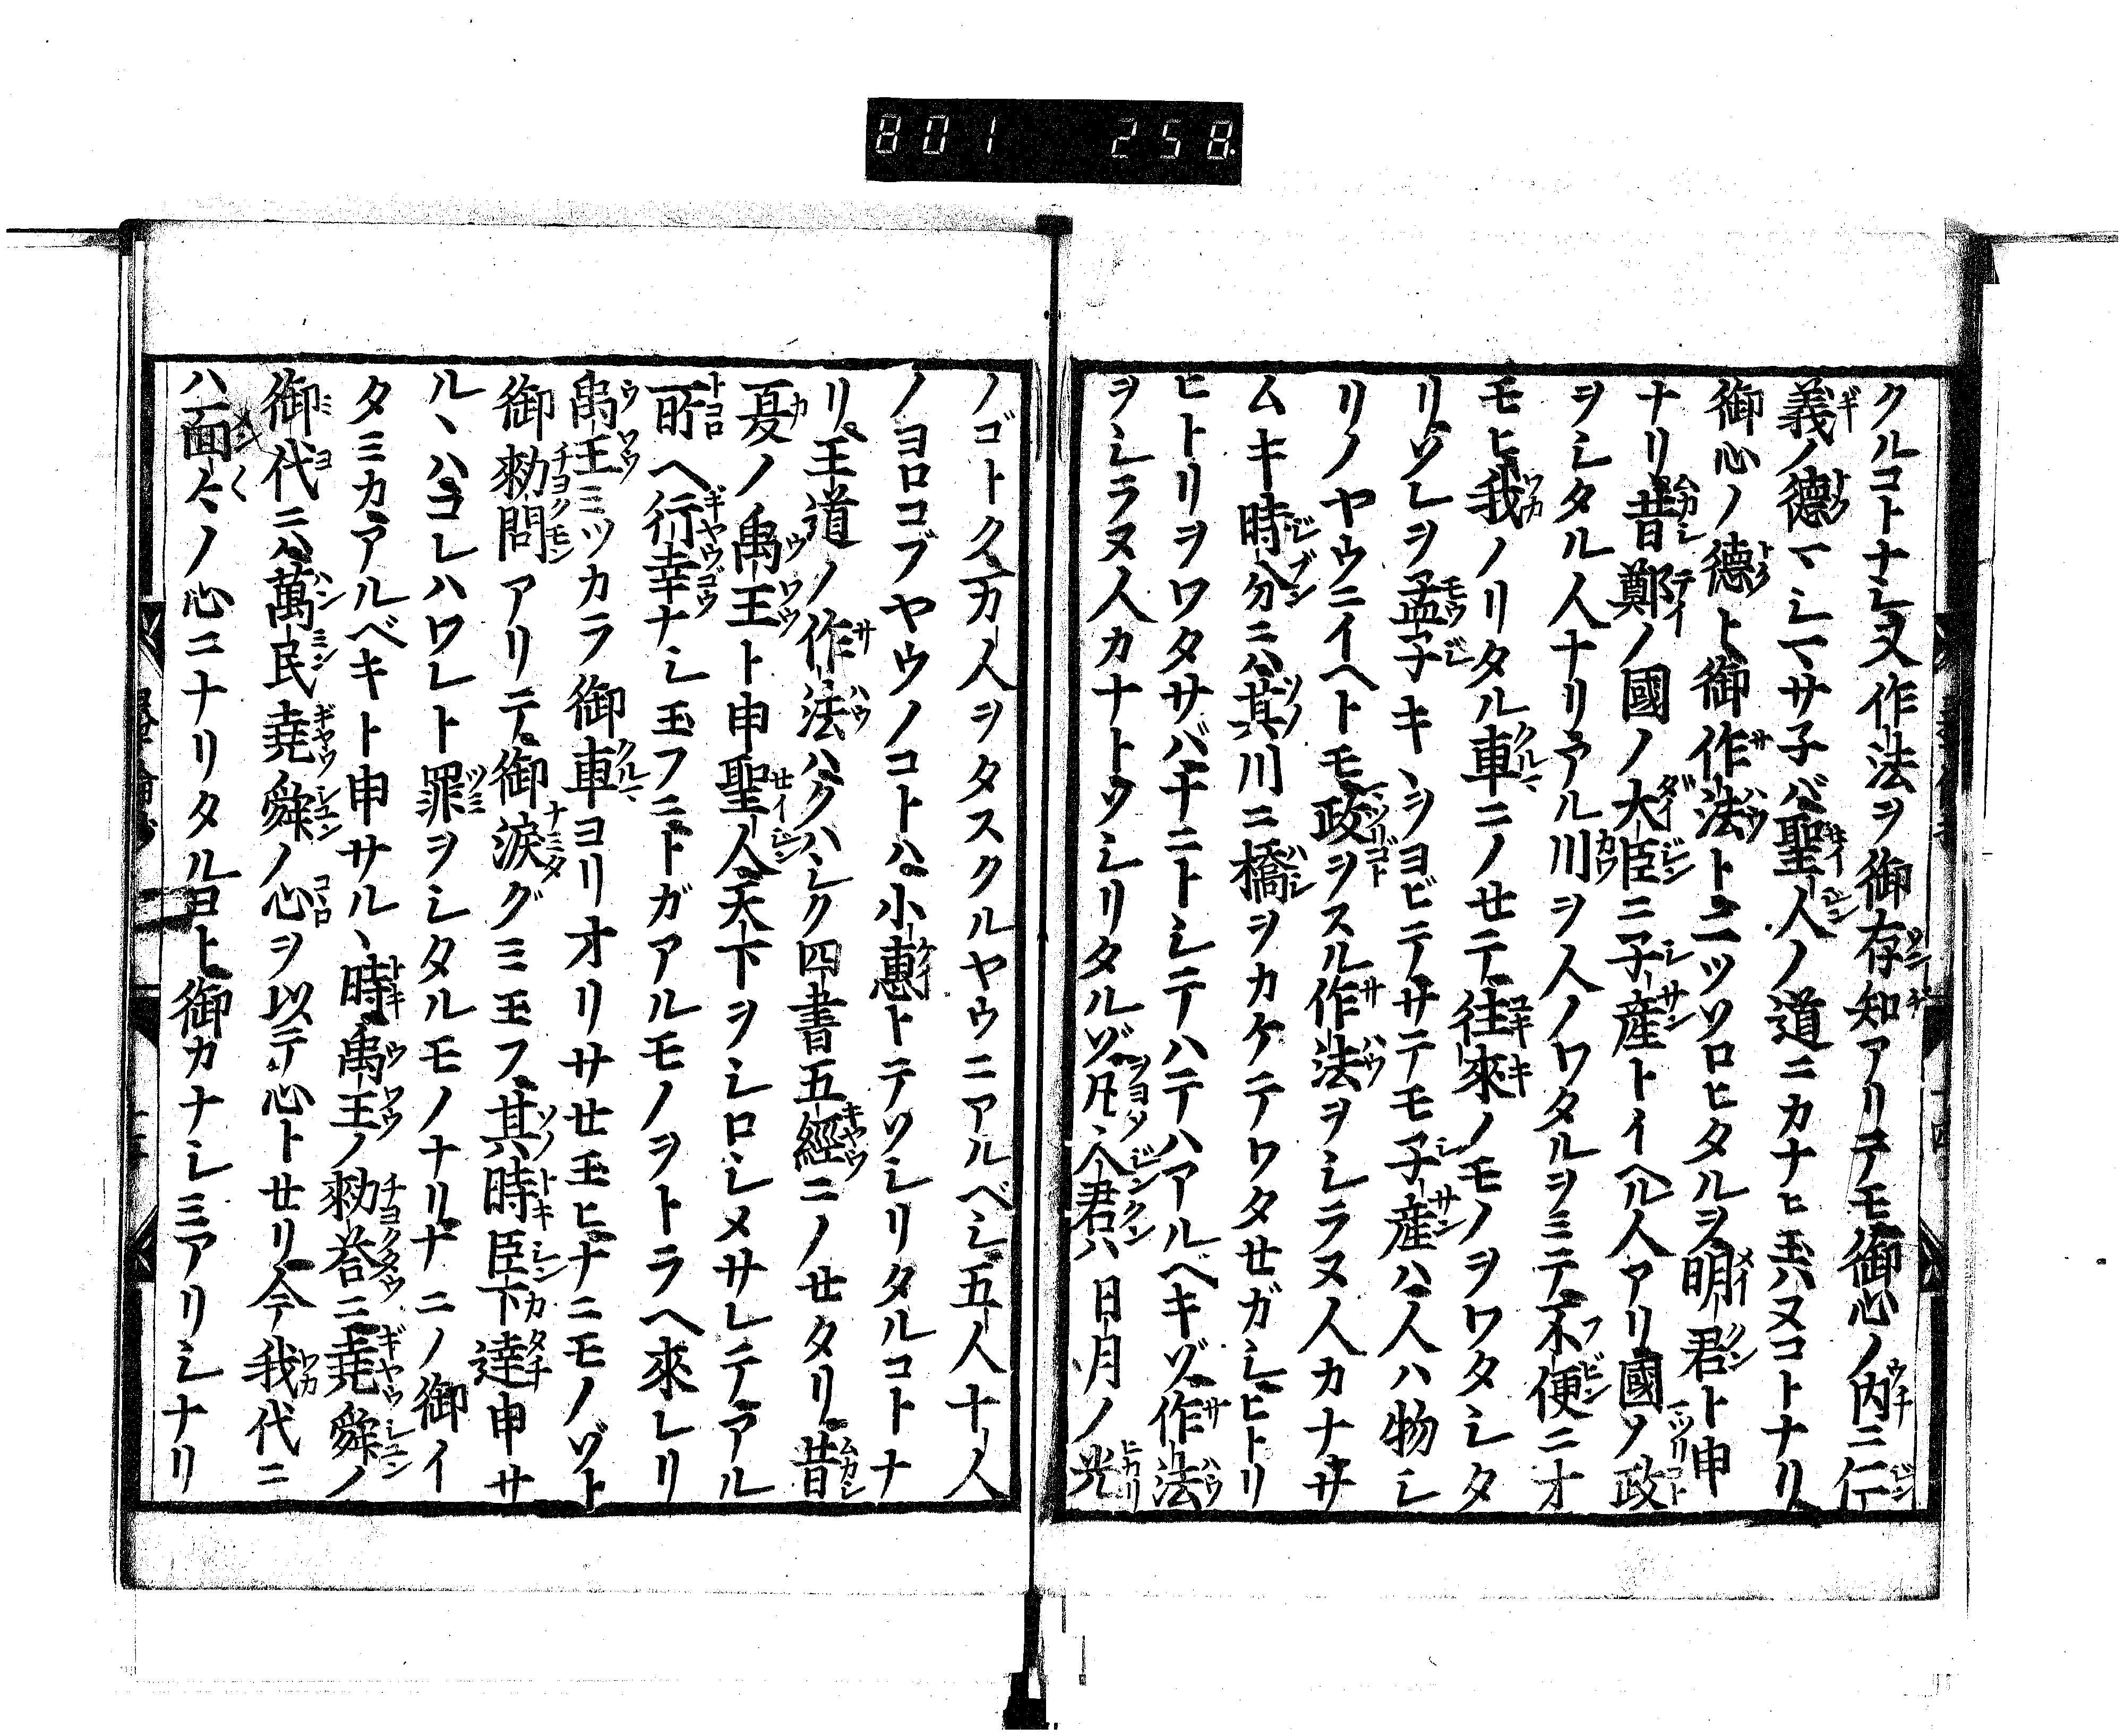 801 258
クルコトナシ又作法ヲ御存知アリテモ御心ノ内ニ仁
義ノ德マシマサ子バ聖人ノ道ニカナヒ玉ハヌコトナリ
御心ノ德ト御作法ト二ツソロヒタルヲ明君ト申
ナリ昔鄭ノ國ノ大臣ニ子產トイヘル人アリ國ノ政
ヲシタル人ナリアル川ヲ人ノワタルヲミテ不便ニオ
モヒ我ノリタル車ニノセテ往來ノモノヲワタシタ
リソレヲ孟子キヽヲヨビテサテモ子產ハ人ハ物シ
リノヤウニイヘトモ政ヲスル作法ヲシラヌ人カナサ
ムキ時分ニハ其川ニ橋ヲカケテワタセガシヒトリ
ヒトリヲワタサバナニトシテハテハアルベキゾ作法
ヲシラヌ人カナトソシリタルゾ凡人君ハ日月ノ光
ノゴトク万人ヲタスクルヤウニアルベシ五人十人
ノヨロコブヤウノコトハ小惠トテソシリタルコトナ
リ王道ノ作法ハクハシク四書五經ニノセタリ昔
夏ノ禹王ト申聖人天下ヲシロシメサレテアル
所ヘ行幸ナシ玉フニトガアルモノヲトラヘ來レリ
禹王ミツカラ御車ヨリオリサセ玉ヒナニモノゾト
御勅問アリテ御淚グミ玉フ其時臣下達申サ
ルヽハコレハワレト罪ヲシタルモノナリナニノ御イ
タミカアルベキト申サルヽ時禹王ノ勅荅ニ堯舜ノ
御代ニハ萬民堯舜ノ心ヲ以テ心トセリ今我代ニ
ハ面々ノ心ニナリタルヨト御カナシミアリシナリ